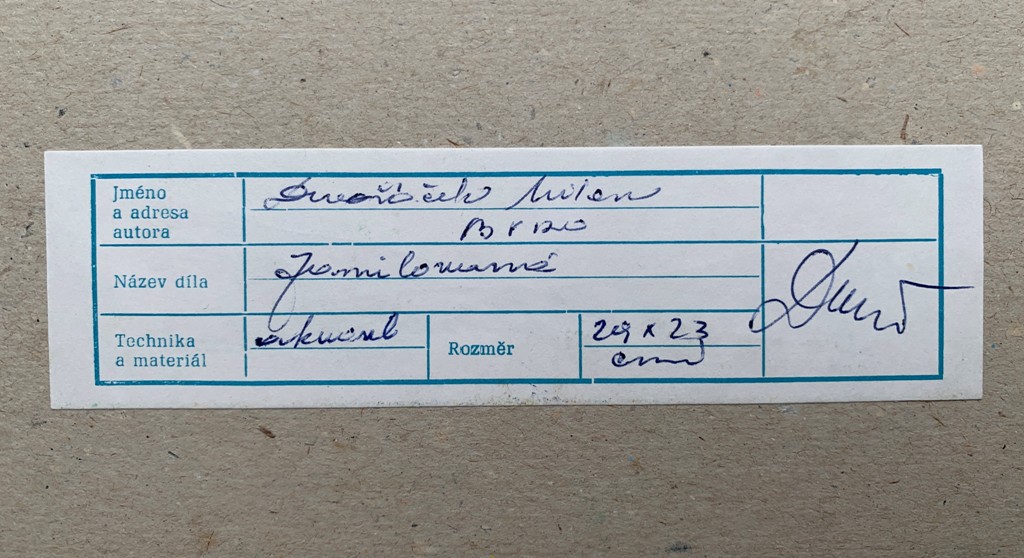 Jméno
a adresa
autora
Dvořáček Milan
Brno
Název díla
Technika
a materiál
akvarel
Rozměr
29 x 23
cm